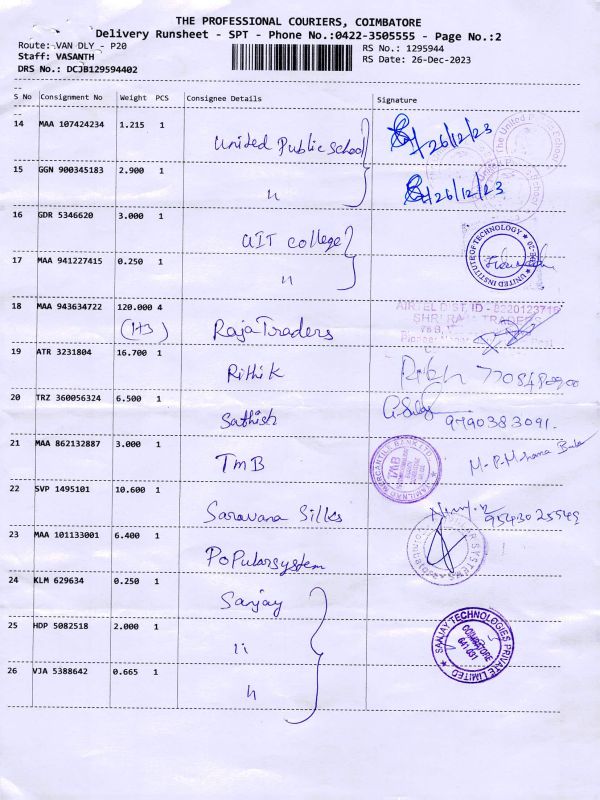 THE PROFESSIONAL COURIERS, COIMBATORE
Delivery Runsheet - SPT - Phone No.:0422-3505555 - Page No.:2
Route: VAN DLY - P20
RS No.: 1295944
Staff: VASANTH
RS Date: 26-Dec-2023
DRS No.: DCJB129594402
S No Consignment No Weight PCS Consignee Details Signature
14 MAA 107424234 1.215 1 United Public School 26/12/23
15 GGN 900345183 2.900 1 " 26/12/23
16 GDR 5346620 3.000 1 UIT college
17 MAA 941227415 0.250 1 "
UNITED INSTITUTE OF TECHNOLOGY
18 MAA 943634722 120.000 4 Raja Traders
(1+3)
AIRTEL DIST, ID - 8220123715
SHRI RAJA TRADERS
19 ATR 3231804 16.700 1 Rithik
20 TRZ 360056324 6.500 1 Sathish 9790383091.
21 MAA 862132887 3.000 1 TMB
TAMILNAD MERCANTILE BANK LTD.
22 SVP 1495101 10.600 1 Saravana Silks 9543025549
23 MAA 101133001 6.400 1 Popularsystem
24 KLM 629634 0.250 1 Sanjay
25 HDP 5082518 2.000 1 "
26 VJA 5388642 0.665 1 "
SANJAY TECHNOLOGIES PRIVATE LIMITED
COIMBATORE
641 031